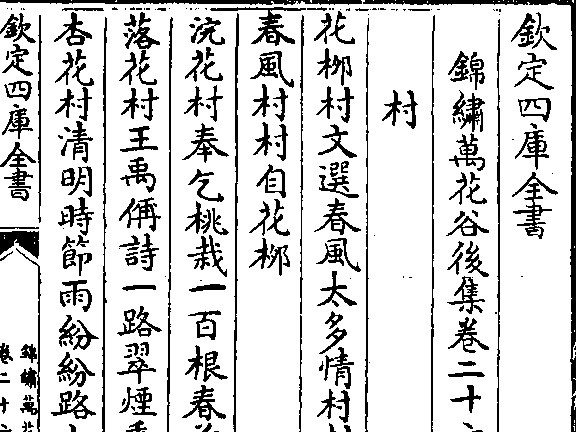 欽定四庫全書
錦繡萬花谷後集卷二十
村
花栁村文選春風太多情村
春風村村自花栁
浣花村奉乞桃栽一百根春
落花村王禹偁詩一路翠煙
杏花村清明時節雨紛紛路
欽定四庫全書
錦繡萬花
卷二十